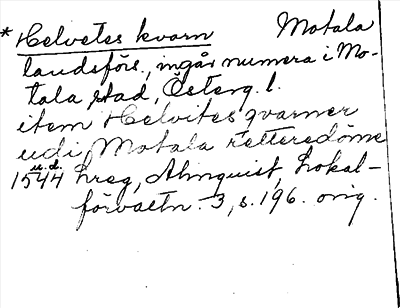 * Helvetes kvarn Motala
landsförs., ingår numera i Mo-
tala stad, Österg. l.
item Helvites qvarner
udi Motala retteredöme
u.d.
1544 Lreg, Almquist, Lokal-
förvaltn. 3, s. 196. orig.